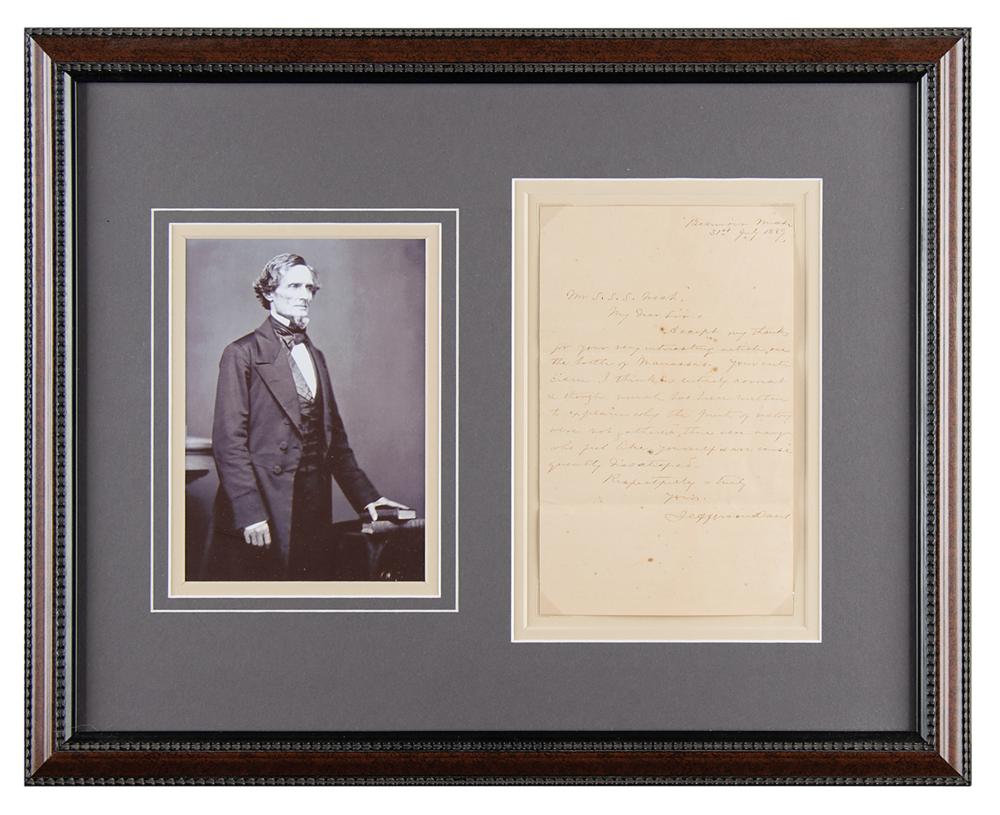 Beauvoir Miss.
31st July 1889,
Mr S. S. S.
My Dear Sir:
Accept my thanks
for your very interesting article on
the battle of Manassas. Your criti
cism I think is entirely correct
& though much has been written
to explain why the fruits of victory
were not gathered, there are many
who feel like yourself and are conse
quently dissatisfied.
Respectfully & truly
yours.
Jefferson Davis